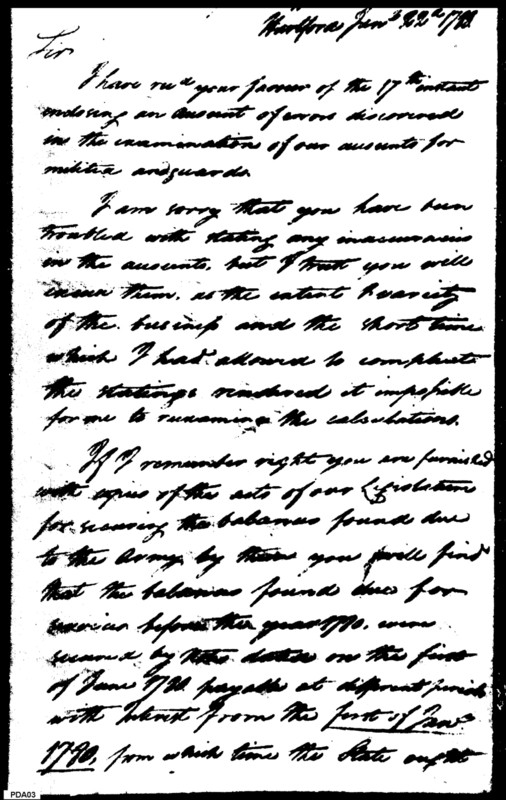 Hartford Jany. 22d 179
Sir
I have recd your favour of the 17th instant
enclosing an account of errors discovered
in the examination of our accounts for
militia and guards.
I am sorry that you have been
troubled with stating any inaccuracies
in the accounts, but I trust you will
excuse them, as the extent & variety
of the business and the short time
which I had allowed to complete
the statings rendered it impossible
for me to reexamine the calculations.
If I remember right you are furnished
with copies of the acts of our Legislature
for securing the balances found due
to the Army by them you will find
that the balances found due for
services before the year 1780, were
secured by notes dated on the first
of June 178 payable at different periods
with Interest from the first of Jany.
1780, from which time the State ought
PDA03